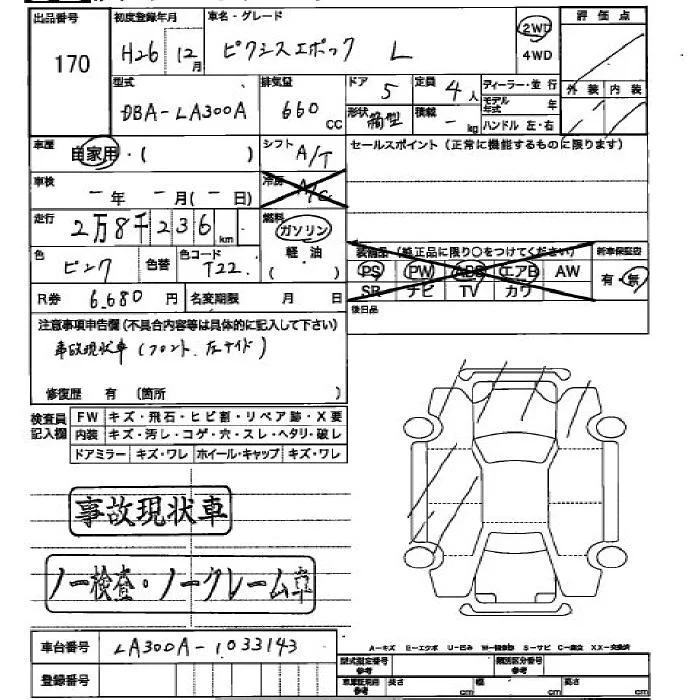 出品番号 初度登録年月 車名・グレード 評価点
170 H26年 12月 ピクシスエポック L 2WD
4WD
型式 排気量 ドア 5 定員 4人 ディーラー・並行 外装 内装
DBA-LA300A 660cc 形状 箱型 積載 - kg モデル年式 年
ハンドル 左・右
車歴 自家用・( ) シフト A/T セールスポイント(正常に機能するものに限ります)
車検 -年 -月(-日) 冷房 A/C
走行 2万8千236km 燃料 ガソリン
軽油
( )
色 ピンク 色替 色コード T22 装備品(純正品に限り○をつけてください) 新車保証書
PS PW ABS エアB AW 有・無
SR ナビ TV カワ
R券 6,680円 名変期限 月 日
後日品
注意事項申告欄(不具合内容等は具体的に記入して下さい)
事故現状車(フロント、左サイド)
修復歴 有(箇所 )
検査員記入欄 FW キズ・飛石・ヒビ割・リペア跡・X要
内装 キズ・汚し・コゲ・穴・スレ・ヘタリ・破レ
ドアミラー キズ・ワレ ホイール・キャップ キズ・ワレ
事故現状車
ノー検査・ノークレーム車
車台番号 LA300A-1033143
A-キズ E-エクボ U-凹み W-補修跡 S-サビ C-腐食 XX-交換済
登録番号 型式指定番号 参考 類別区分番号 参考
車庫証明用 参考 長さ cm 幅 cm 高さ cm